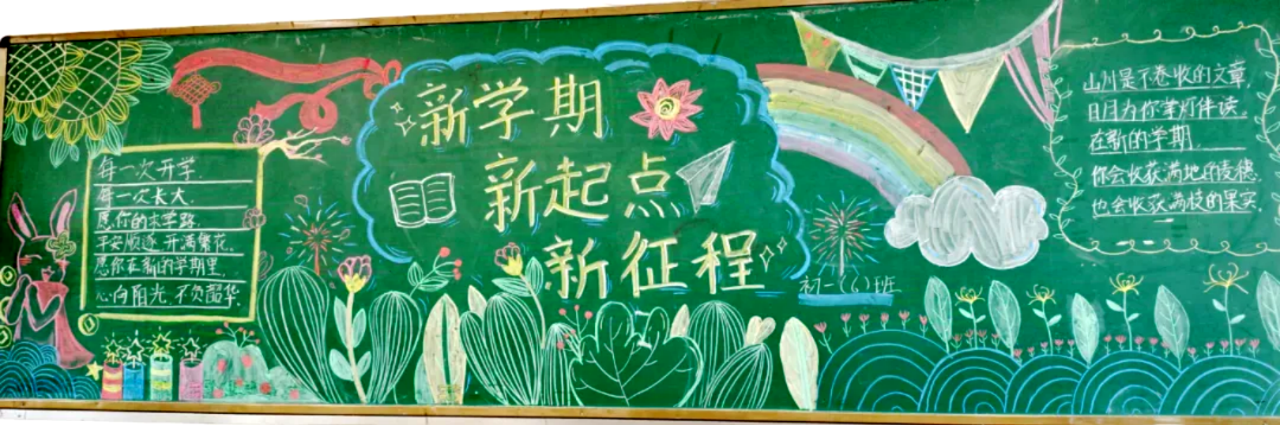 每一次开学.
每一次长大.
愿你的求学路
平安顺遂 开满繁花.
愿你在新的学期里.
心向阳光.不负韶华.
新学期
新起点
新征程
初一(6)班
山川是不卷收的文章.
日月为你掌灯伴读.
在新的学期.
你会收获满地的麦穗.
也会收获满枝的果实